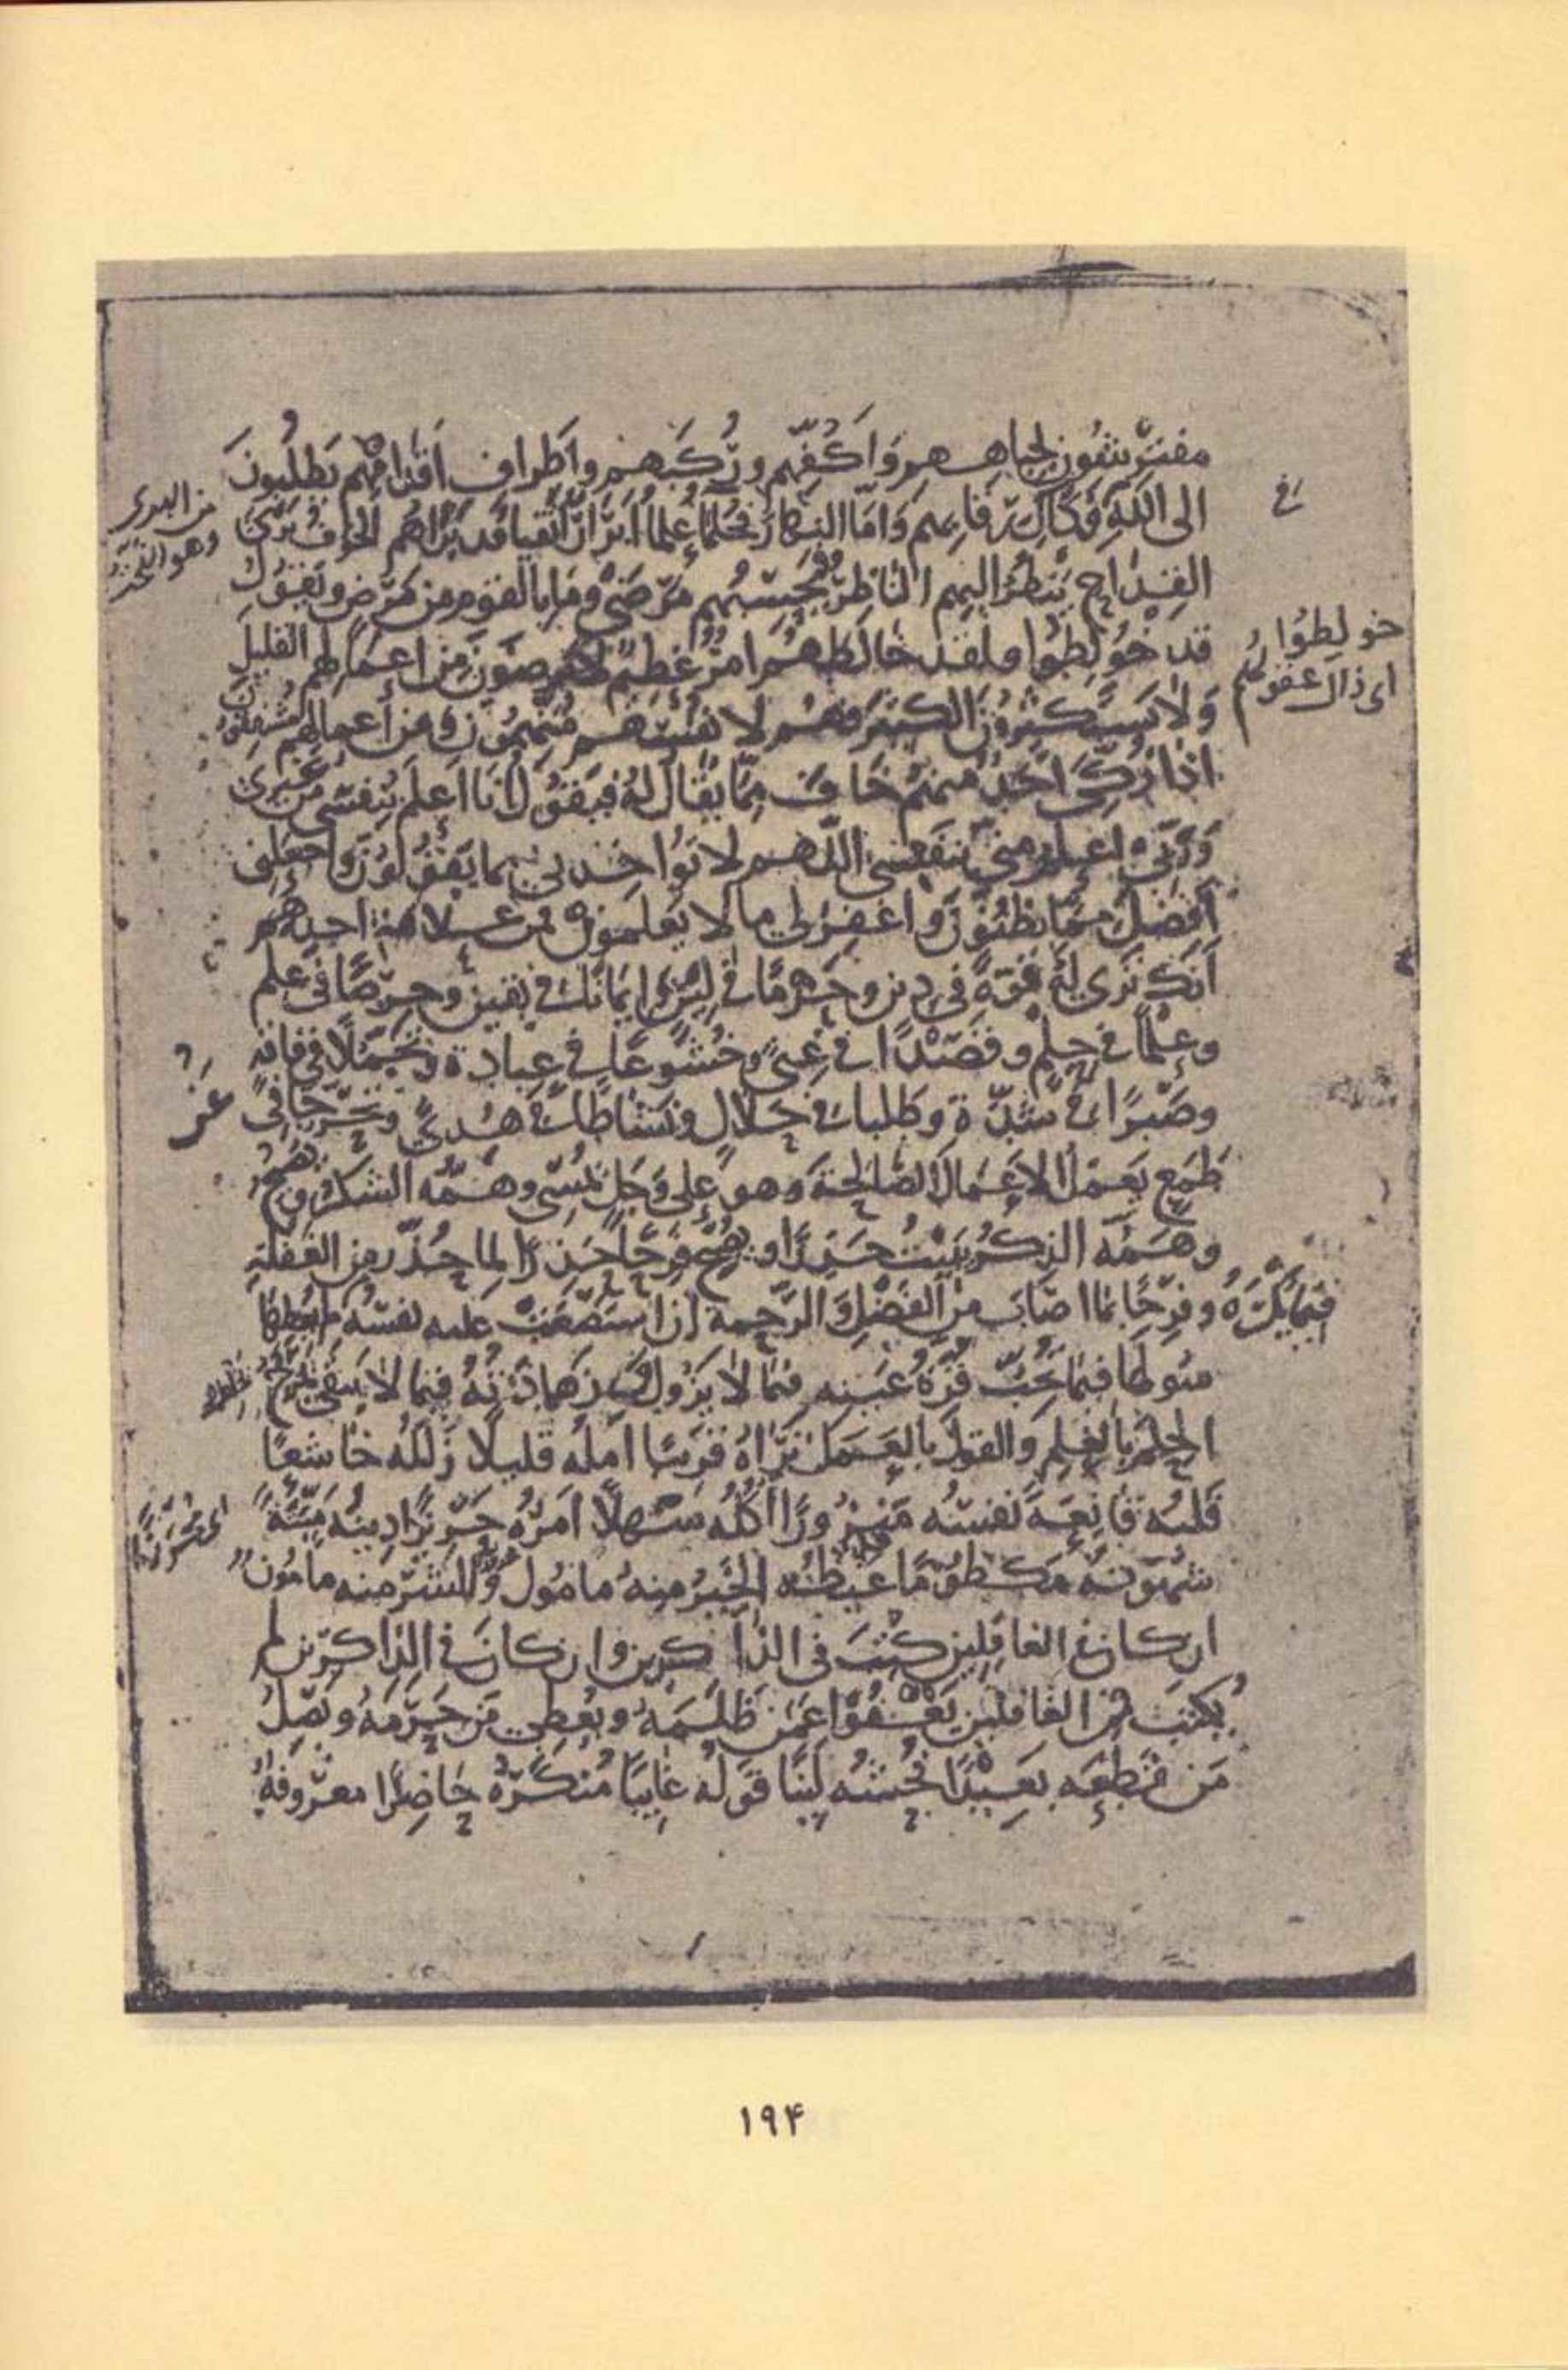 مفترشون لجباههم وَاَكُفِّهم ورُكَبهم واَطراف اَقدامِهم يَطلُبُونَ
الى اللّهِ فكَاكَ رقابهم وَامّا النهار فحُلَماءُ عُلماءُ اَبرارٌ اَتقياء قد بَراهم الخوف بَرىَ
القِداح يَنظُرُ اليهم الناظرُ فيحسبُهم مرضى وما بالقوم من مَرَض ويقولُ
قد خُولِطُوا ولقد خالطهم امرٌ عظيمٌ لا يرضون من اعمالهم القليل
وَلا يستكثرون الكثير فهُم لانفُسهم مُتّهِمُون ومن أعمالهم مُشفِقونَ
اذا زُكِّىَ اَحَدٌ منهم خافَ مِمّا يُقالُ لهُ فيقُولُ اَنا اَعلَمُ بنفسى من غيرى
وَرَبّى اعلم منى بنفسى اللّهم لا تُواخذنى بما يَقُولُونَ واجعلنى
اَفضلَ ممّا يظنّونَ واغفِر لى ما لا يَعلمون فمن علامة احدهم
اَنّك ترى له قوّةً فى دين وحزمًا فى لين وايمانًا فى يقين وحرصًا فى علم
وعِلمًا فى حِلم وقصدًا فى غِنىً وخُشوعًا فى عبادة وتجمّلًا فى فاقه
وصَبرًا فى شدّة وطلبا فى حلال ونشاطًا فى هُدىً وتحرّجًا فى
طمَع يَعمَلُ الاَعمالَ الصّالحةَ وهو على وَجَل يُمسى وهَمُّه الشكر ويُصبحُ
وهَمُّه الذكر يَبيتُ حَذِرًا ويُصبح فَرِحًا حَذِرًا لما حُذّر من الغفلة
وفرِحًا بما اصابَ من الفضل والرّحمة ان استصعبت عليه نفسُه فيما يَكرَهُ لم يُعطِها
سُولَها فيما تُحِبّ قُرّةُ عينه فيما لا يزُول وزَهادتُهُ فيما لا يبقى يمزج
الحِلمَ بالعِلم والقولَ بالعمل تراهُ قريبًا اَملُه قليلًا زَلَلُه خاشعًا
قلبُه قانِعةً نفسُه مَنزُورًا اَكلُه سهلًا امرُه حريزًا دِينُه ميّتةً
شهوتُه مكظومًا غيظُه الخيرُ منهُ مامُول والشرّ منه مامُون
ان كان فى الغافلين كُتِبَ فى الذاكرين وان كانَ فى الذاكرين لم
يُكتَب من الغافلين يَعفُوا عمّن ظلمَه ويُعطى من حرَمَهُ ويَصِلُ
مَن قطعَه بَعيدًا فُحشُه ليّنًا قولُه غايبًا مُنكَرُهُ حاضِرًا معرُوفهُ
خولِطُوا
اى زال عقولهم
۱۹۴